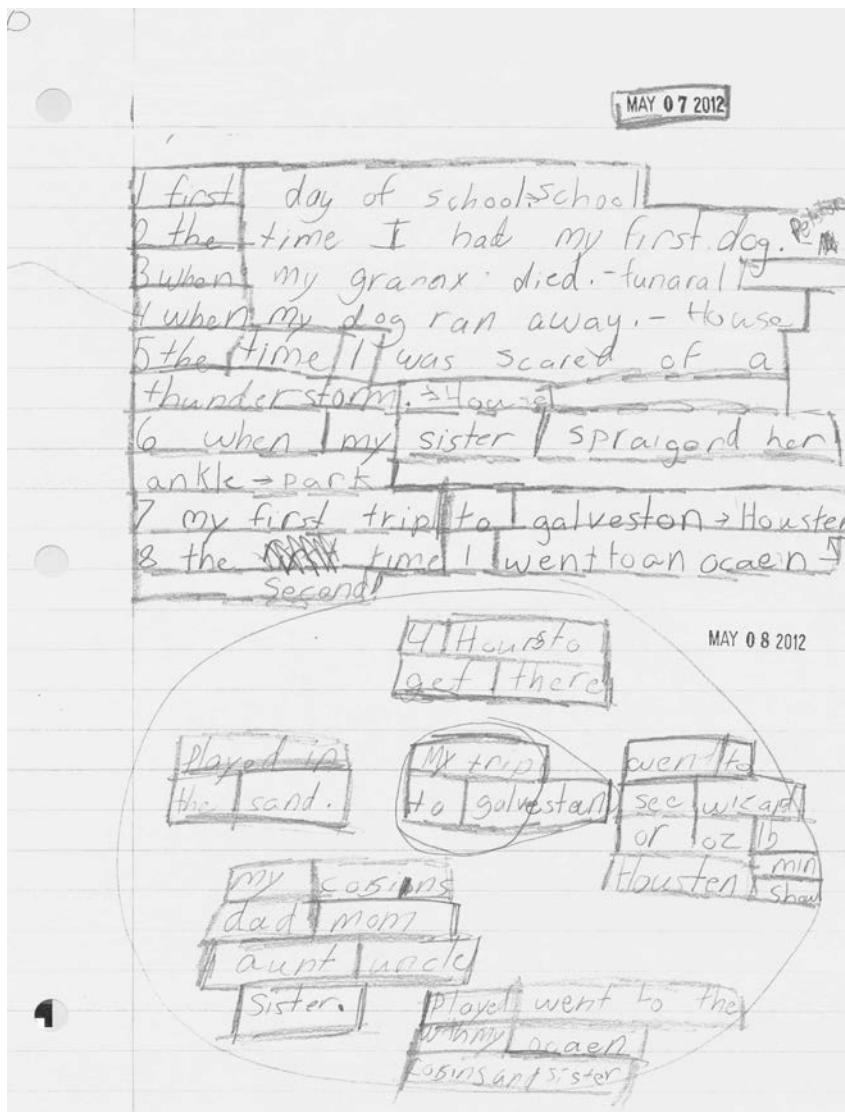 MAY 07 2012
1 first day of school→school
2 the time I had my first dog.
3 when my granny died.-funaral
4 when my dog ran away.- House
5 the time I was scared of a
thunderstorm.→House
6 when my sister spraigond her
ankle→park
7 my first trip to galveston→Housten
8 the time I went to an ocaein→
Second!
MAY 08 2012
4 Hours to
get there
Played in
the sand.
My trip
to galvestan
went to
see wizard
or oz 15
min
Housten
show
my cosins
dad mom
aunt uncle
Sister.
Played went to the
with my ocaen
cosins and sister